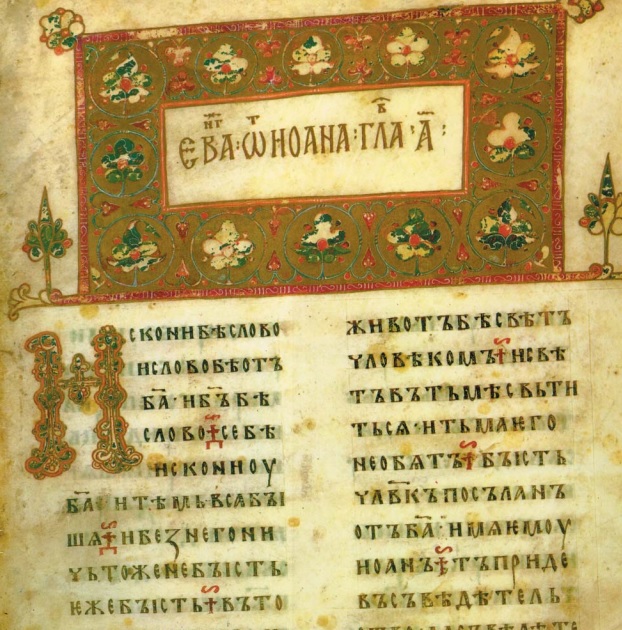 ЕВА҃НГ · Ѿ ИОАНА · ГЛА҃В · А҃ :
ИСКОНИ БѢ СЛОВО
И СЛОВО БѢ ОТЪ
БА҃ · И БЪ҃ БѢ
СЛОВО · СЕ БѢ
ИСКОНИ ОУ
БА҃ · И ТѢМЬ ВСꙖ БꙐ
ШѦ · И БЕЗ НЕГО НИ
ЧЬТОЖЕ НЕ БꙐСТЬ ·
ѤЖЕ БꙐСТЬ · ВЪ ТО
ЖИВОТЪ БѢ СВѢТЪ
ЧЛОВѢКОМЪ · И СВѢ
ТЪ ВЪ ТЬМѢ СВЬТИ
ТЬСѦ · И ТЬМА ѤГО
НЕ ОБѦТЪ · БꙐСТЬ
ЧЛВ҃КЪ ПОСЪЛАНЪ
ОТЪ БА҃ · ИМѦ ѤМОУ
ИОАНЪ · ТЪ ПРИДЕ
ВЪ СЪВѢДѢТЕЛЬ